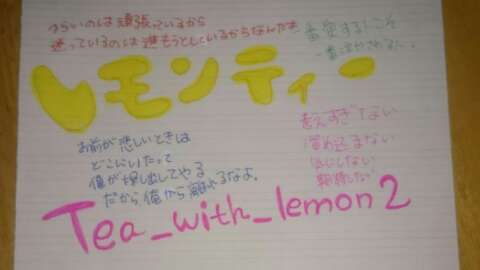 つらいのは頑張っているから
迷っているのは進もうとしているからなんだよ
レモンティー
お前が悲しいときは
どこにいたって
俺が探し出してやる
だから、俺から離れるなよ。
考えすぎない
溜め込まない
気にしない
期待しない
Tea_with_lemon2